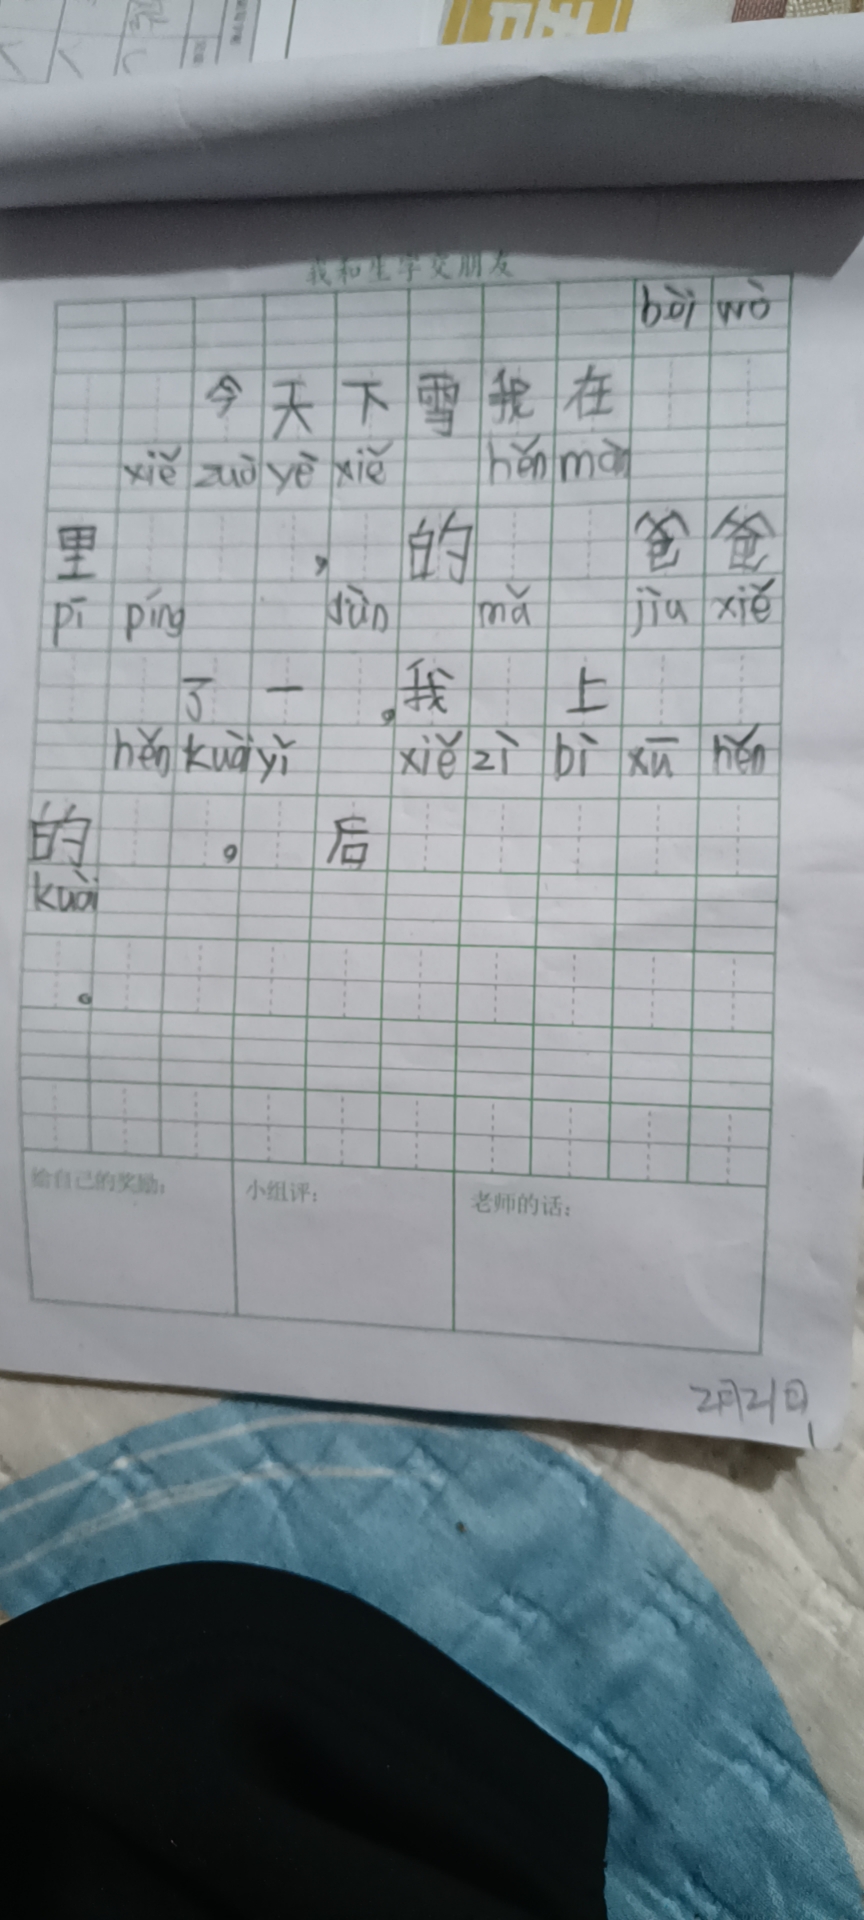 我和生字交朋友
bèi wō
今天下雪我在
xiě zuò yè xiě hěn màn
里，的爸爸
pī píng dùn mǎ jiu xiě
了一，我上
hěn kuài yǐ xiě zì bì xū hěn
的。后
kuài
。
给自己的奖励：
小组评：
老师的话：
2月21日